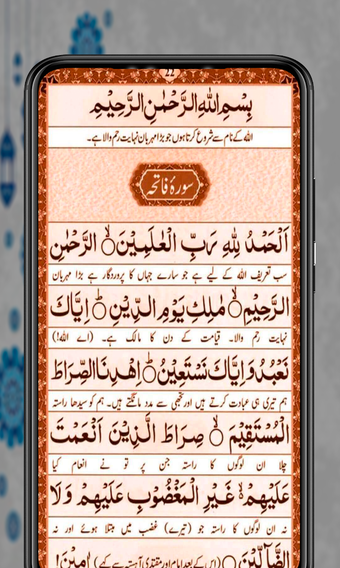 22
بِسْمِ اللهِ الرَّحْمٰنِ الرَّحِيْمِ
اللہ کے نام سے شروع کرتا ہوں جو بڑا مہربان نہایت رحم والا ہے۔
سورۃ فاتحہ
اَلْحَمْدُ لِلّٰهِ رَبِّ الْعٰلَمِيْنَ ۙ الرَّحْمٰنِ
سب تعریف اللہ کے لیے ہے جو سارے جہاں کا پروردگار ہے بڑا مہربان
الرَّحِيْمِ ۙ مٰلِكِ يَوْمِ الدِّيْنِ ؕ اِيَّاكَ
نہایت رحم والا۔ قیامت کے دن کا مالک ہے۔ (اے اللہ!)
نَعْبُدُ وَاِيَّاكَ نَسْتَعِيْنُ ؕ اِهْدِنَا الصِّرَاطَ
ہم تیری ہی عبادت کرتے ہیں اور تجھی سے مدد مانگتے ہیں۔ ہم کو سیدھا راستہ
الْمُسْتَقِيْمَ ۙ صِرَاطَ الَّذِيْنَ اَنْعَمْتَ
چلا ان لوگوں کا راستہ جن پر تو نے انعام کیا
عَلَيْهِمْ ۙ غَيْرِ الْمَغْضُوْبِ عَلَيْهِمْ وَلَا
نہ ان لوگوں کا راستہ جو (تیرے) غضب میں مبتلا ہوئے اور نہ
الضَّآلِّيْنَ ۧ (اس کے بعد امام اور مقتدی آہستہ سے کہے) اٰمِيْن!